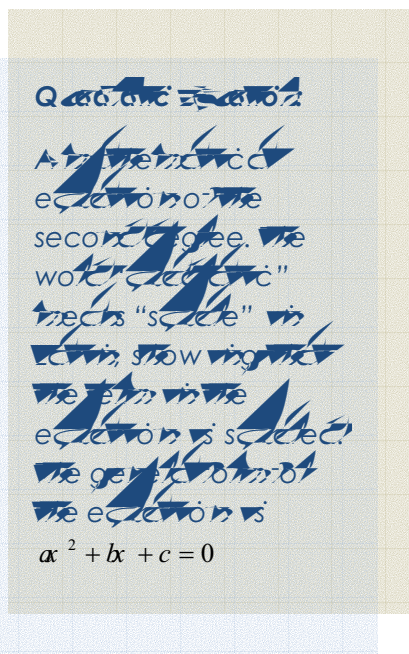 Quadratic equation:
A mathematical
equation of the
second degree. The
word "quadratic"
means "square" in
Latin, showing that
the term in the
equation is squared.
The general form of
the equation is
ax ² + bx + c = 0